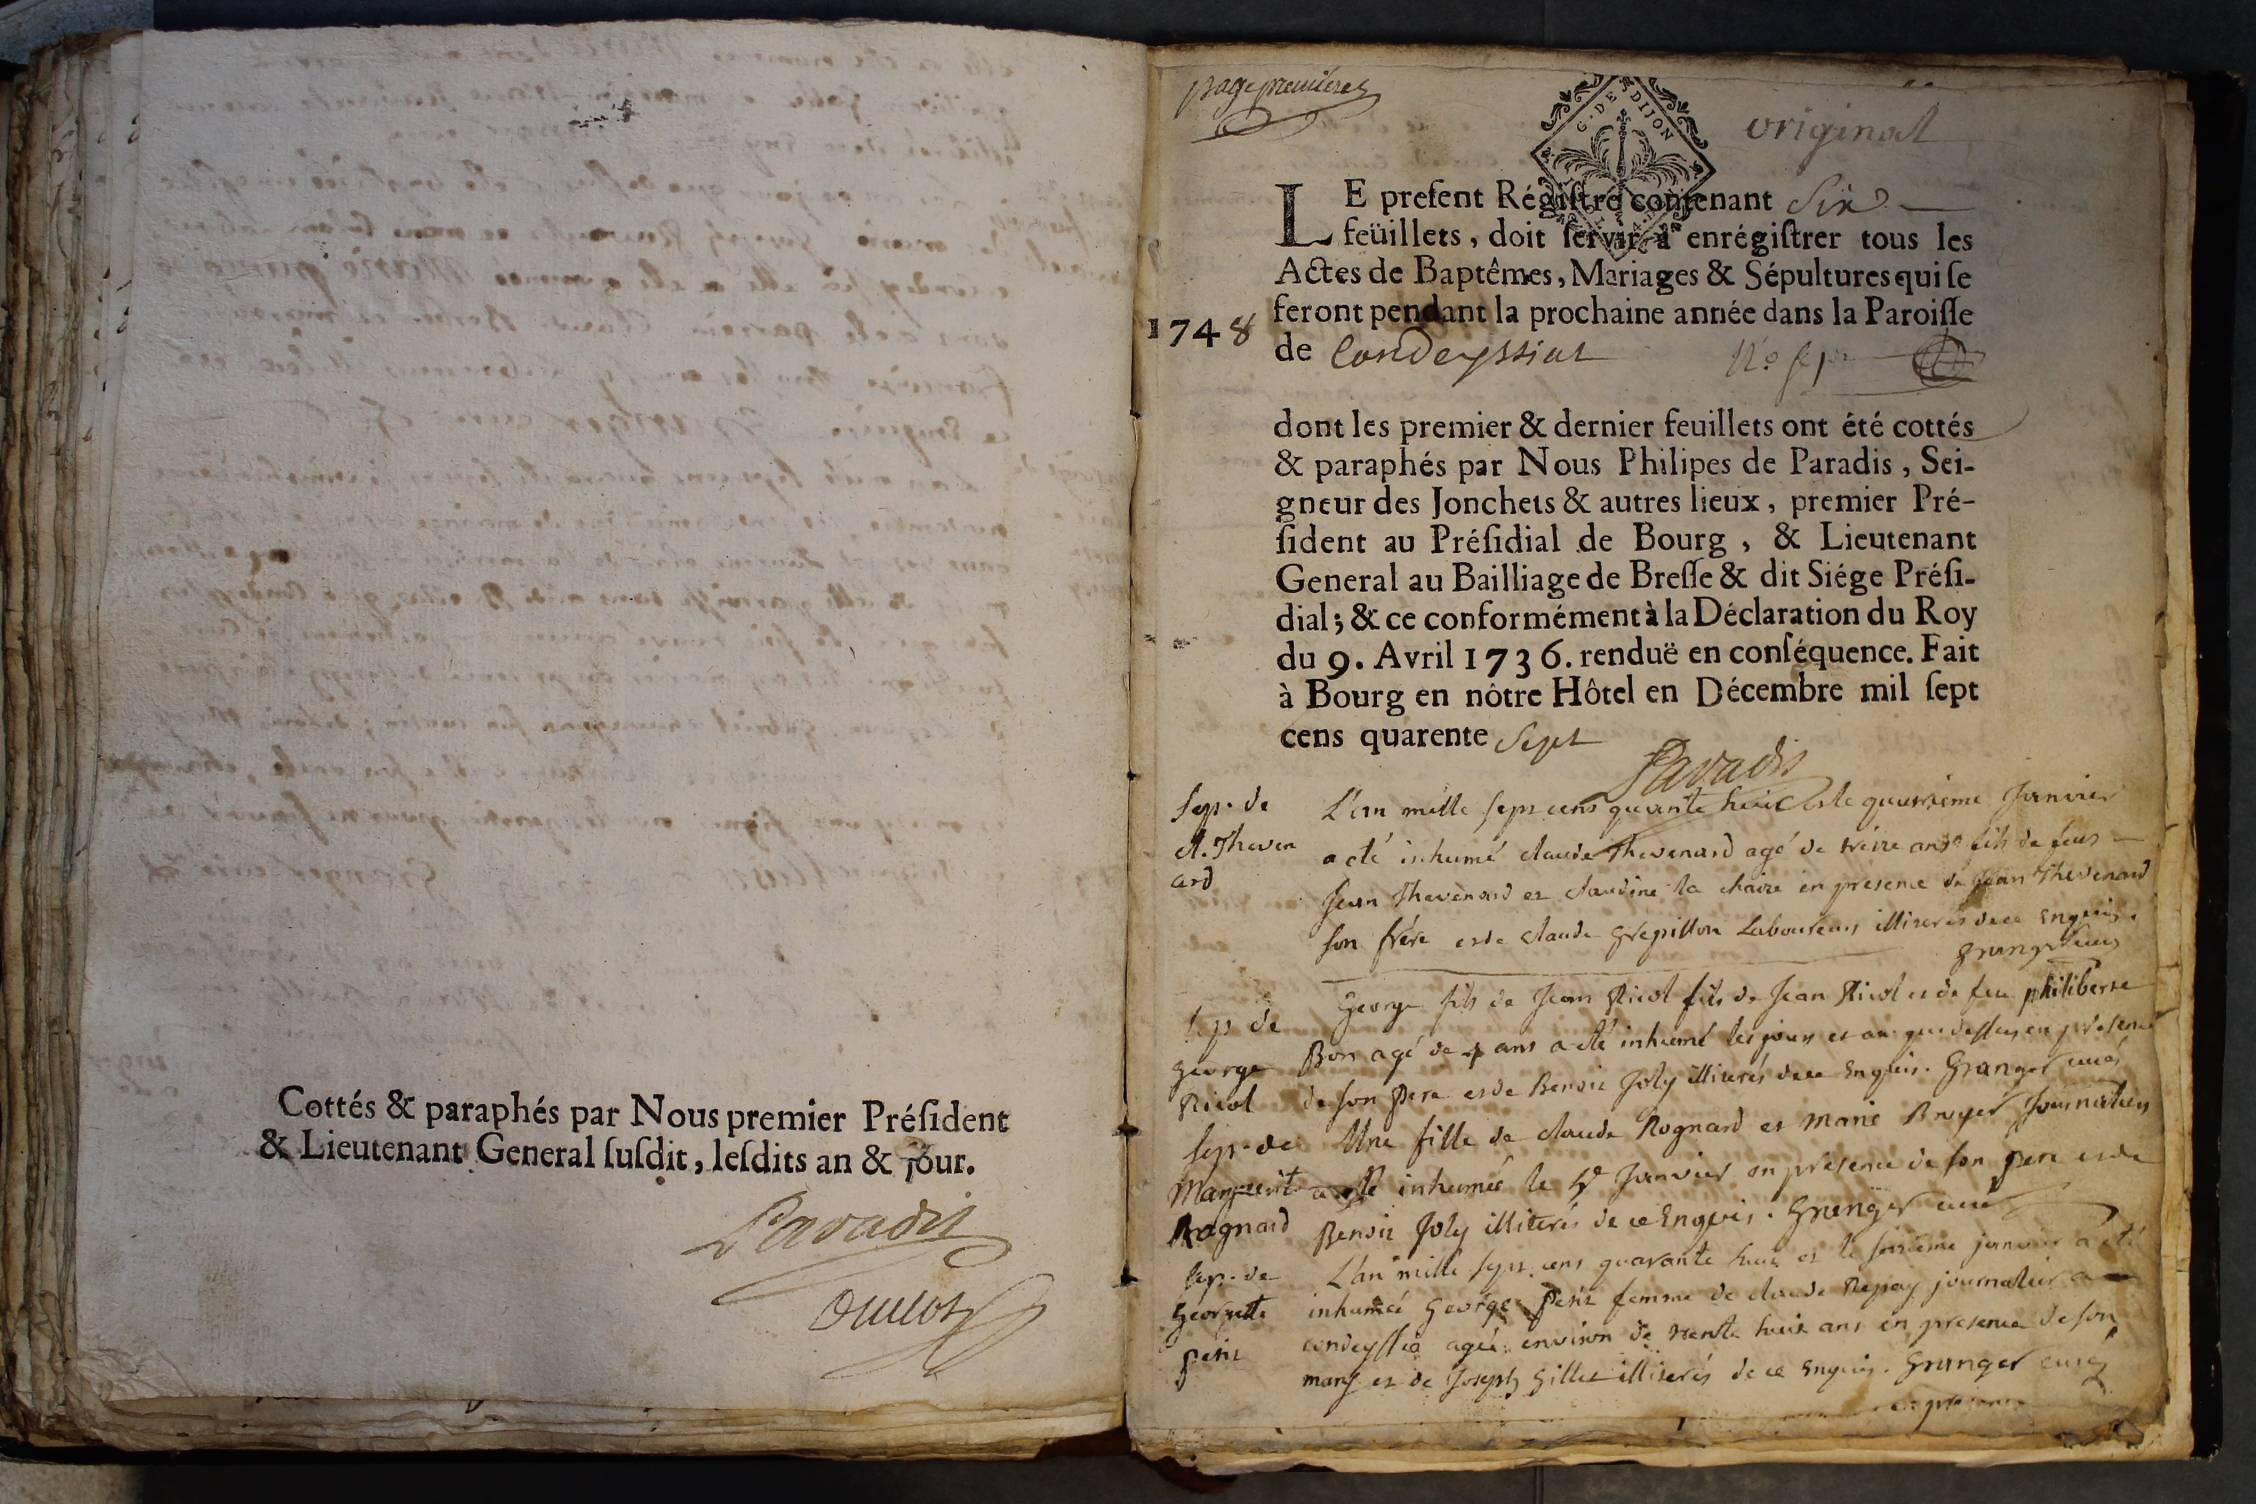 Cottés & paraphés par Nous premier Préſident
& Lieutenant General ſuſdit, leſdits an & jour.
Paradis
page premiere
G. DE DIJON
original
LE preſent Régiſtre contenant Six
feüillets, doit ſervir à enrégiſtrer tous les
Actes de Baptêmes, Mariages & Sépultures qui ſe
feront pendant la prochaine année dans la Paroiſſe
1748
de Condeyssiat
dont les premier & dernier feuillets ont été cottés
& paraphés par Nous Philipes de Paradis, Sei-
gneur des Jonchets & autres lieux, premier Pré-
ſident au Préſidial de Bourg, & Lieutenant
General au Bailliage de Breſſe & dit Siége Préſi-
dial; & ce conformément à la Déclaration du Roy
du 9. Avril 1736. renduë en conſéquence. Fait
à Bourg en nôtre Hôtel en Décembre mil ſept
cens quarente Sept
Paradis
Sep. de
Cl. Theven
ard
L'an mille sept cens quarante huit et le janvier
a eté inhumé claude Thevenard agé de ans fils de feus
Jean Thevenard et claudine la chaire en presence de Jean Thevenard
son frére et de claude grepillon Laboureurs illiterés de ce Enquis.
Granger curé
Sep de
george
Ricol
George fils de Jean Ricol fils de Jean Ricol et de feu philiberte
Bon agé de 4 ans a eté inhumé les jour et an que dessus en présence
de son Pere et de Benoit Joly illiterés de ce Enquis. Granger curé
Sep. de
Marguerit
Rognard
Une fille de claude Rognard et Marie Bruyer Journaliers
a eté inhumée le Janvier en présence de son Pere et de
Benoit Joly illiterés de ce Enquis. Granger curé
Sep. de
Georgette
petit
L'an mille sept cens quarante huit et le janvier a été
inhumée George petit femme de claude journalier a
condeyssia agée environ de trente huit ans en presence de son
mary et de Joseph Gillet illiterés de ce Enquis. Granger curé